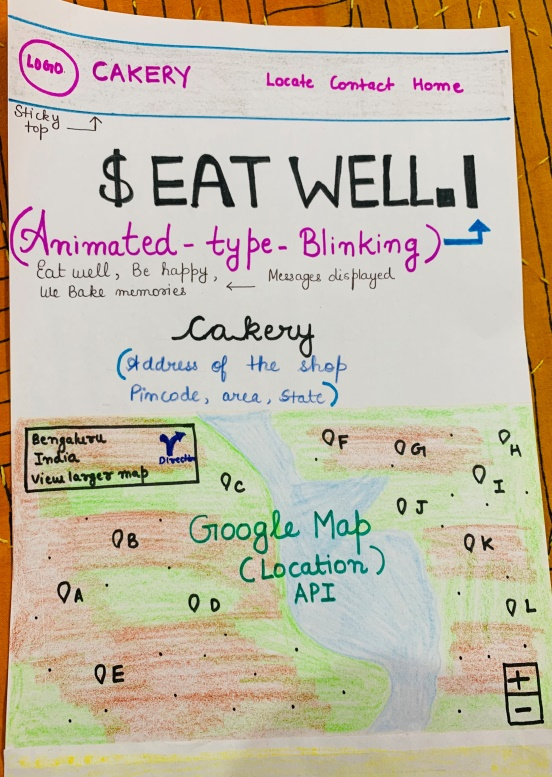 LOGO CAKERY Locate Contact Home
Sticky
top
$ EAT WELL.|
(Animated-type-Blinking)
Eat well, Be happy, ← Messages displayed
We Bake memories
Cakery
(Address of the shop
Pincode, area, State)
Bengaluru
India
View larger map
Direction
F
G
H
C
I
J
Google Map
(Location)
API
B
K
A
D
L
E
+
-